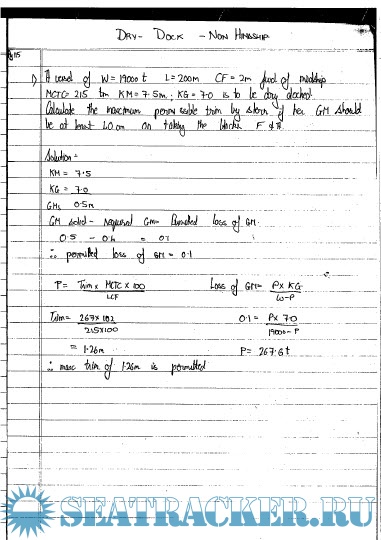 DRY- DOCK - NON MIDSHIP
1) A vessel of W= 19000 t L= 200m CF = 2m fwd of midship
MCTC= 215 tm KM = 7.5m; KG = 7.0 is to be dry docked.
Calculate the maximum permissible trim by stern if her GM should
be at least 40 cm on taking the blocks F & A.
Solution =
KM = 7.5
KG = 7.0
GMs 0.5m
GM solid - Required GM= Permitted loss of GM.
0.5 - 0.4 = 0.1
∴ permitted loss of GM = 0.1
P= Trim x MCTC x 100 / LCF Loss of GM= P x KG / W-P
Trim = 267 x 102 / 215x100 0.1 = P x 7.0 / 19000 - P
= 1.26m P= 267.6 t
∴ max trim of 1.26m is permitted
SEATRACKER.RU